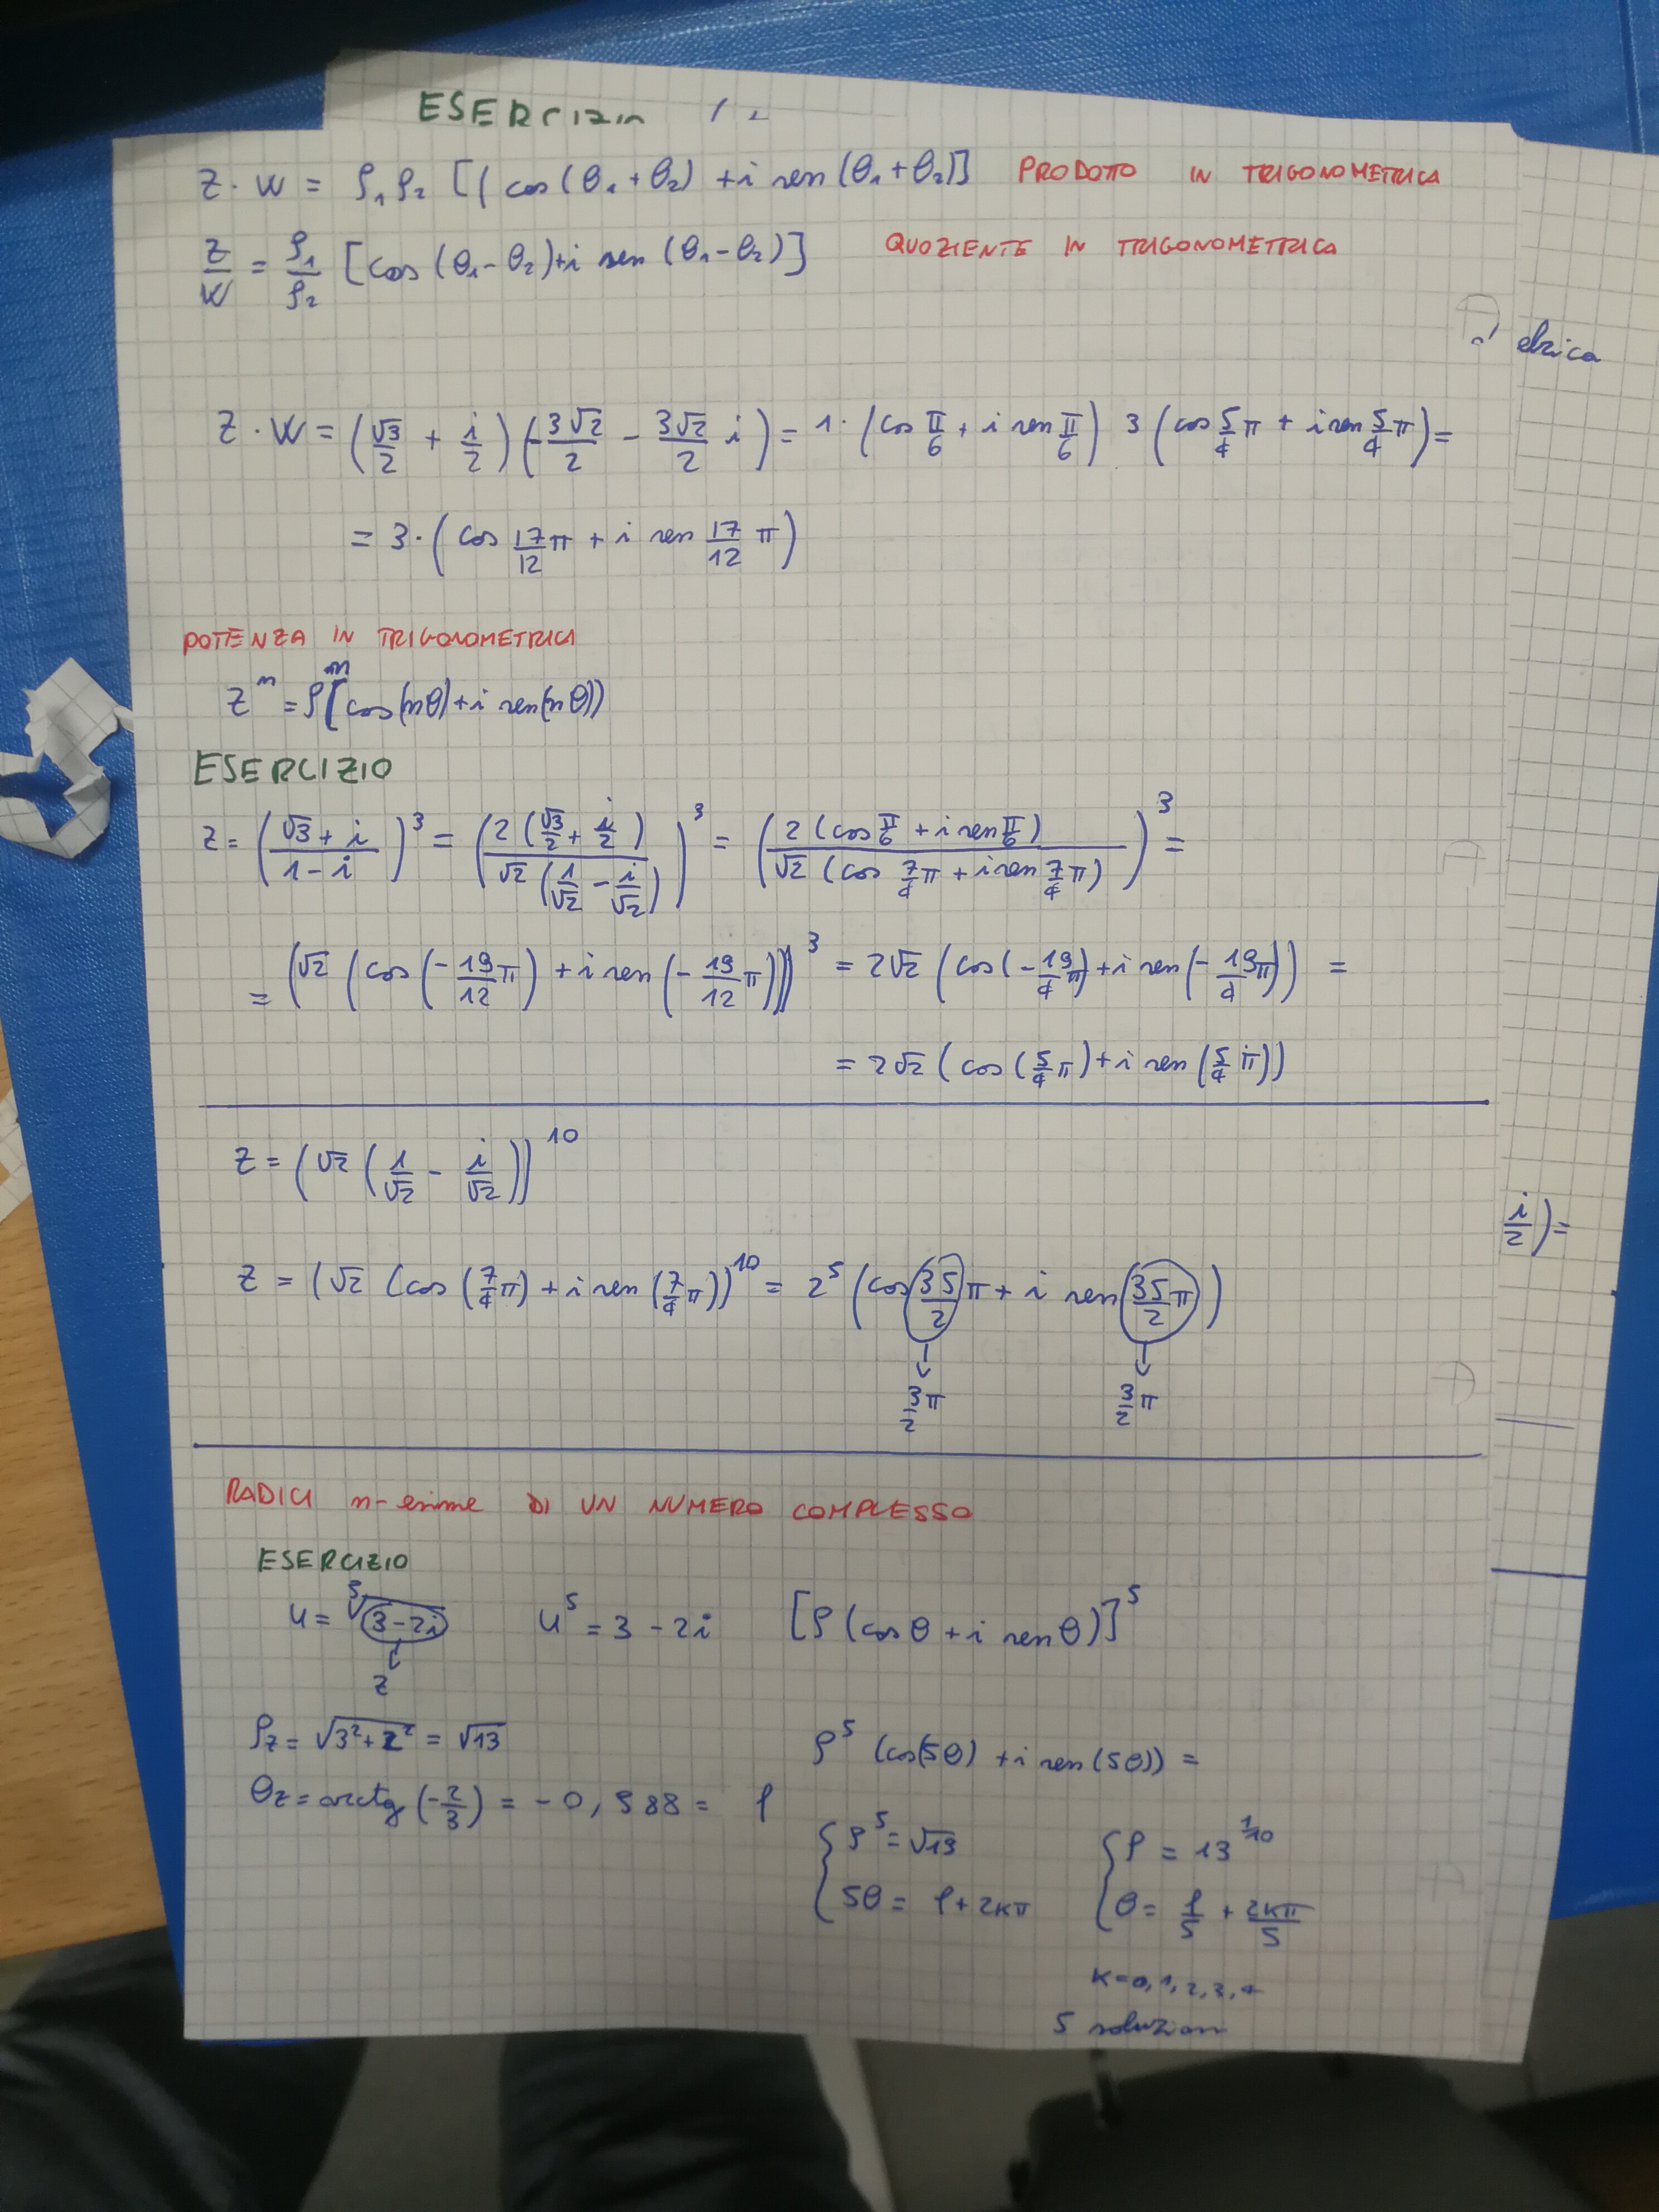 ESERCIZIO
Z · W = ρ₁ρ₂ [( cos(θ₁+θ₂) + i sen(θ₁+θ₂)] PRODOTTO IN TRIGONOMETRICA
Z/W = ρ₁/ρ₂ [cos(θ₁-θ₂)+i sen(θ₁-θ₂)] QUOZIENTE IN TRIGONOMETRICA
Z · W = (√3/2 + i/2)(-3√2/2 - 3√2/2 i) = 1·(cos π/6 + i sen π/6) 3(cos 5/4 π + i sen 5/4 π) =
= 3·(cos 17/12 π + i sen 17/12 π)
POTENZA IN TRIGONOMETRICA
Zⁿ = ρⁿ[cos(nθ)+i sen(nθ))
ESERCIZIO
Z = ((√3+i)/(1-i))³ = (2(√3/2+i/2)/√2(1/√2-i/√2))³ = (2(cos π/6 + i sen π/6)/√2(cos 7/4 π + i sen 7/4 π))³ =
= (√2(cos(-19/12 π) + i sen(-19/12 π)))³ = 2√2(cos(-19/4 π)+i sen(-19/4 π)) =
= 2√2(cos(5/4 π)+i sen(5/4 π))
Z = (√2(1/√2 - i/√2))¹⁰
i/2)=
Z = (√2(cos(7/4 π)+i sen(7/4 π))¹⁰ = 2⁵(cos 35/2 π + i sen 35/2 π)
↓ ↓
3/2 π 3/2 π
RADICI n-esime DI UN NUMERO COMPLESSO
ESERCIZIO
u = ⁵√3-2i u⁵ = 3-2i [ρ(cosθ + i senθ)]⁵
↓
z
ρz = √3²+2² = √13
ρ⁵ (cos(5θ) + i sen(5θ)) =
θz = arctg(-2/3) = -0,588 = φ
{ρ⁵ = √13 {ρ = 13^1/10
5θ = φ+2kπ θ = φ/5 + 2kπ/5
K=0,1,2,3,4
5 soluzioni